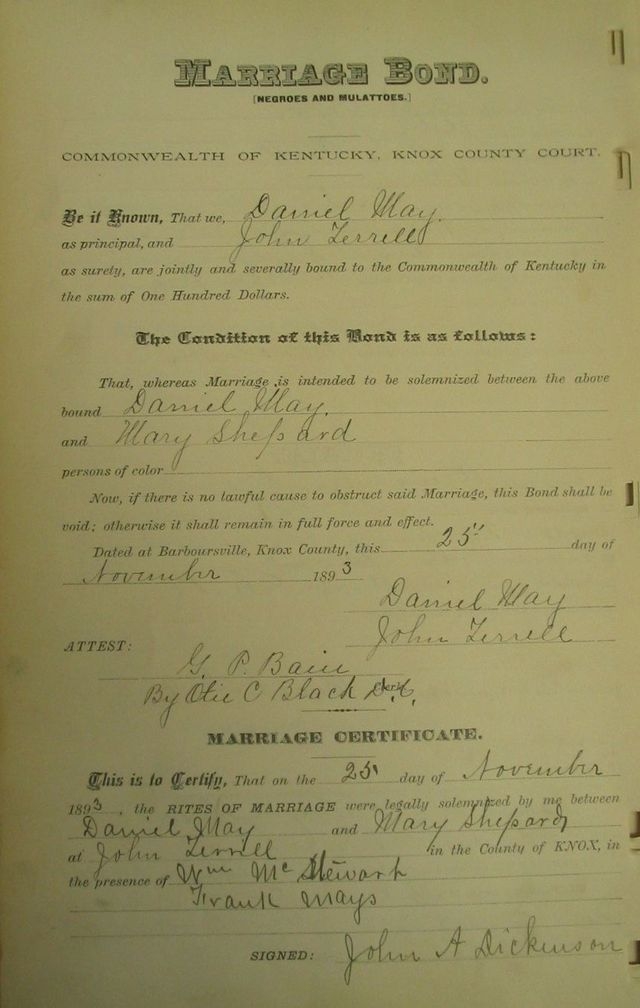 MARRIAGE BOND.
[NEGROES AND MULATTOES.]
COMMONWEALTH OF KENTUCKY, KNOX COUNTY COURT.
Be it Known, That we, Daniel May.
as principal, and John Terrell
as surety, are jointly and severally bound to the Commonwealth of Kentucky in
the sum of One Hundred Dollars.
The Condition of this Bond is as follows:
That, whereas Marriage is intended to be solemnized between the above
bound Daniel May,
and Mary Shepard
persons of color
Now, if there is no lawful cause to obstruct said Marriage, this Bond shall be
void; otherwise it shall remain in full force and effect.
Dated at Barboursville, Knox County, this 25" day of
November 1893
Daniel May
John Terrell
ATTEST:
G. P. Bain
By Otie C Black D.C.
Clerk
MARRIAGE CERTIFICATE.
This is to Certify, That on the 25 day of November
1893, the RITES OF MARRIAGE were legally solemnized by me between
Daniel May and Mary Shepard
at John Terrell in the County of KNOX, in
the presence of Wm Mc Stewart
Frank Mays
SIGNED: John A Dickinson